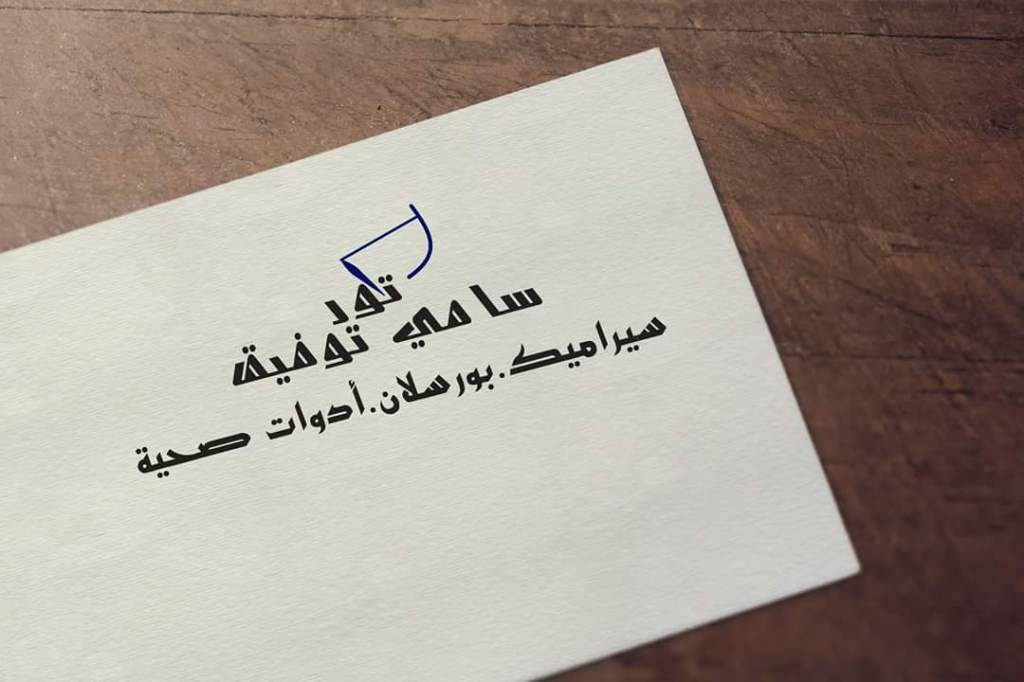 تور
سامي توفيق
سيراميك.بورسلان.أدوات صحية